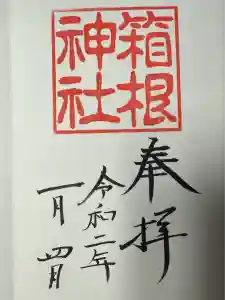 箱根
神社
奉拝
令和二年
一月 四日